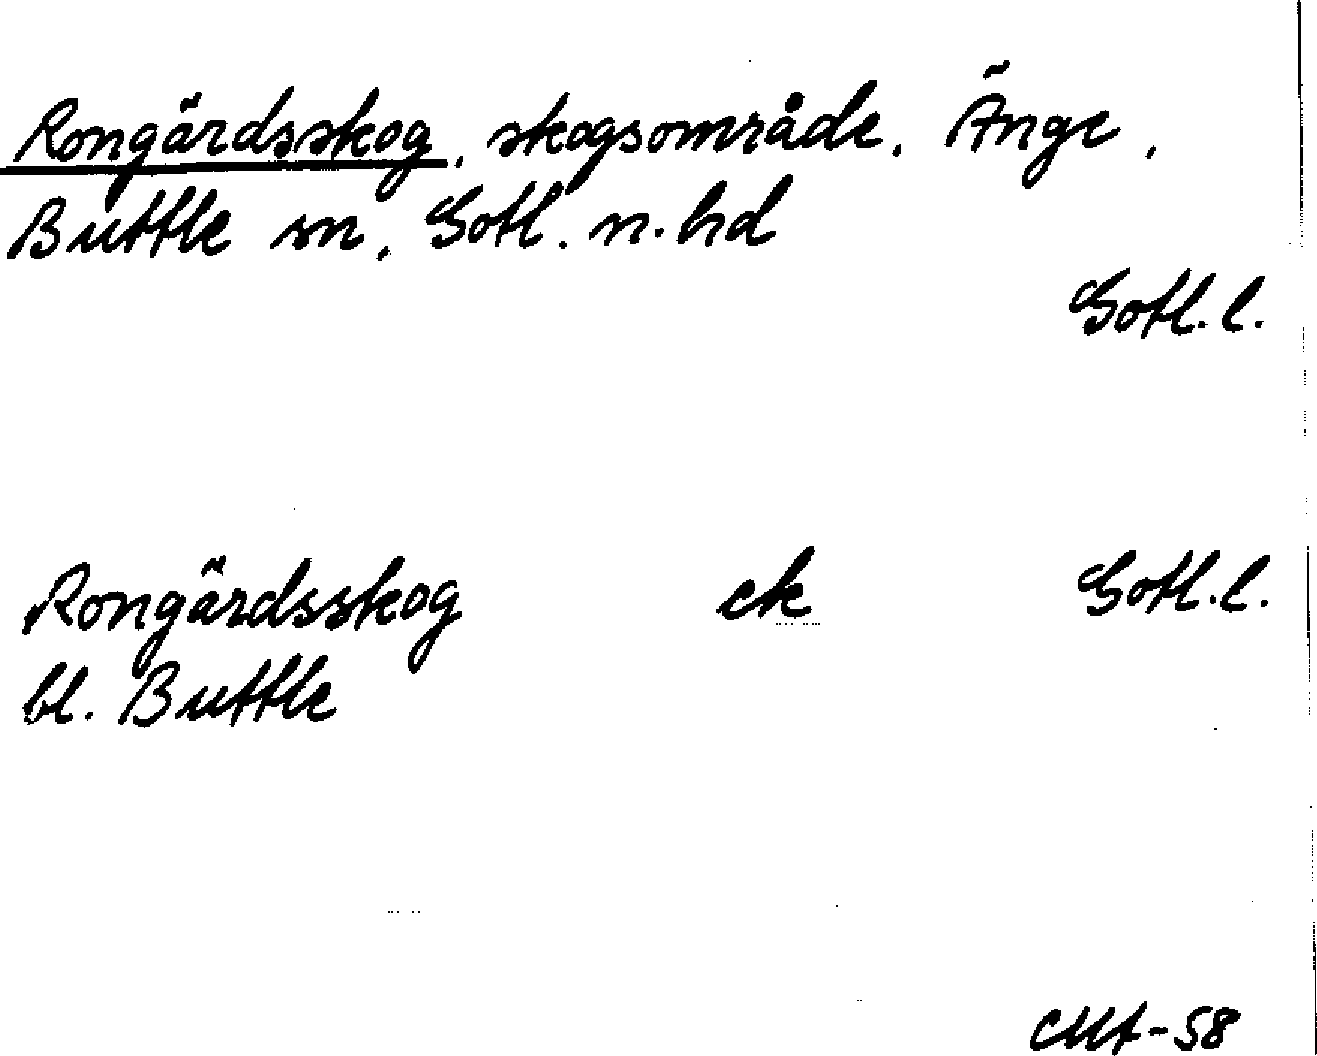 Rongärdsskog, skogsområde, Änge,
Buttle sn, Gotl. n. hd
Gotl. l.
Rongärdsskog ek Gotl. l.
bl. Buttle